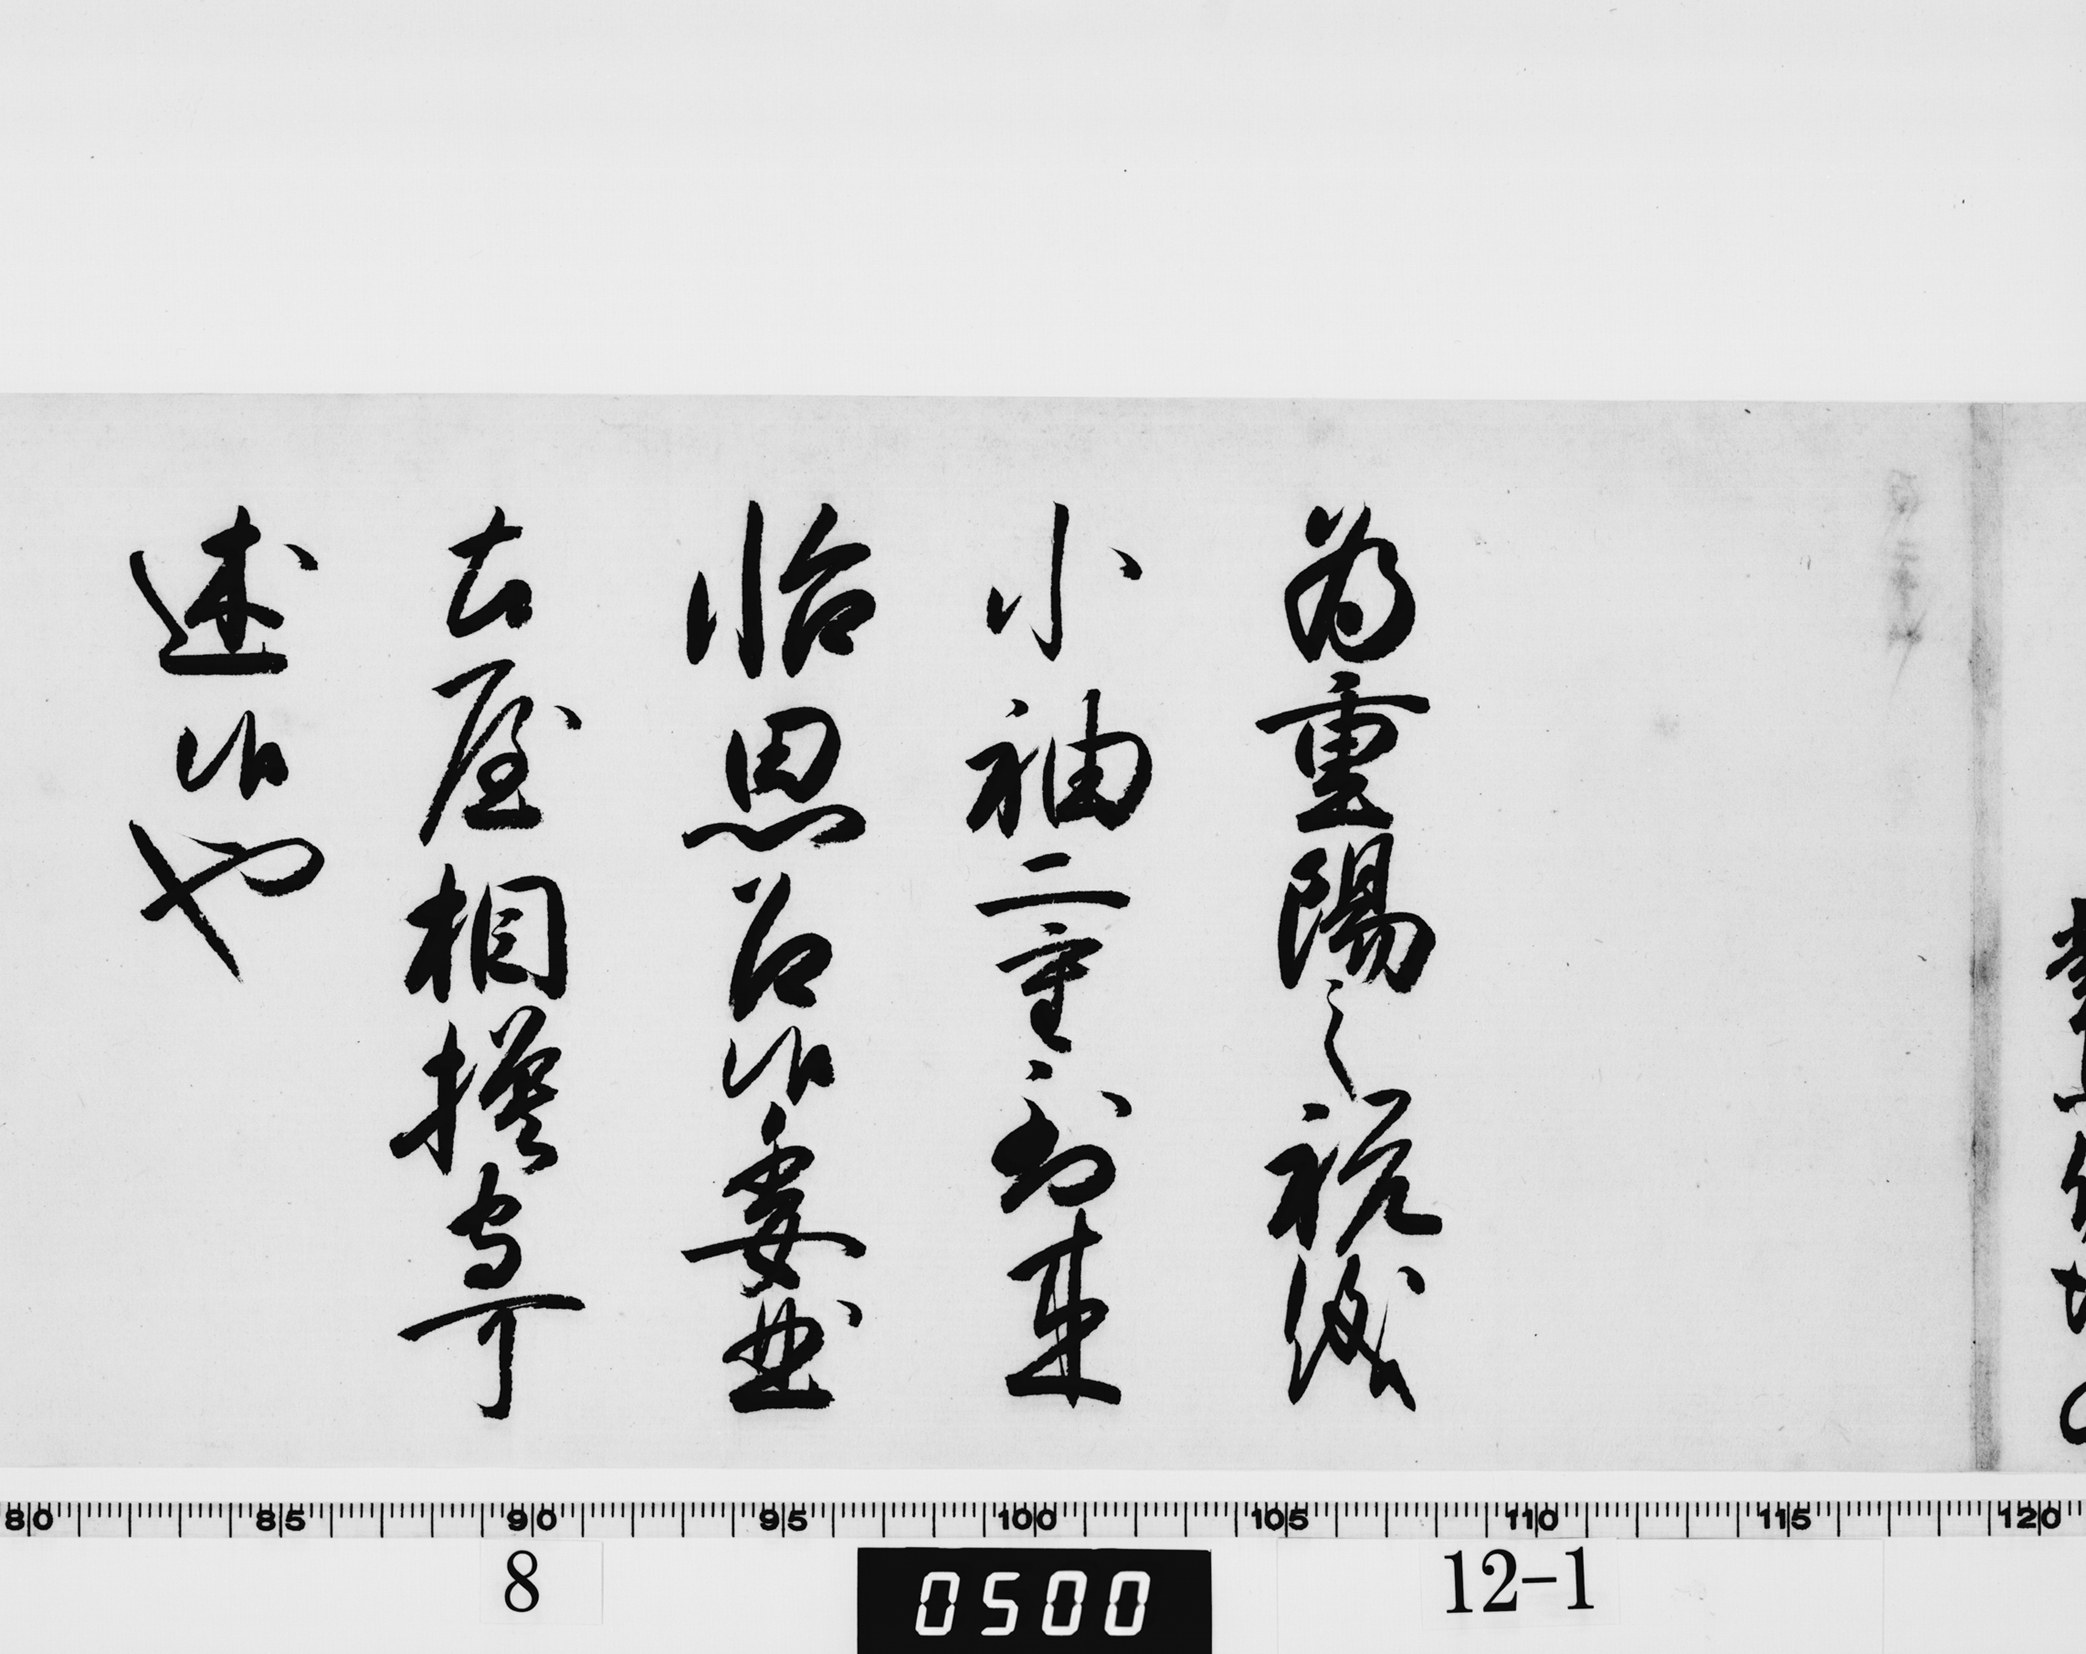 為重陽之祝儀
小袖二重到来
怡思召候委曲
土屋相摸守可
述候也
80 85 90 95 100 105 110 115 120
8 0500 12-1